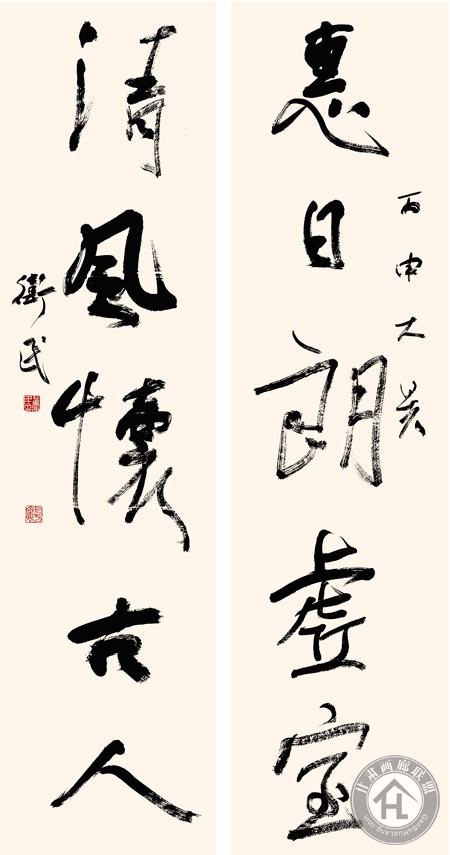 惠日朗虚室
丙申大
清風懷古人
衛民
甘肃画廊联盟
GanSuHuaLang.com